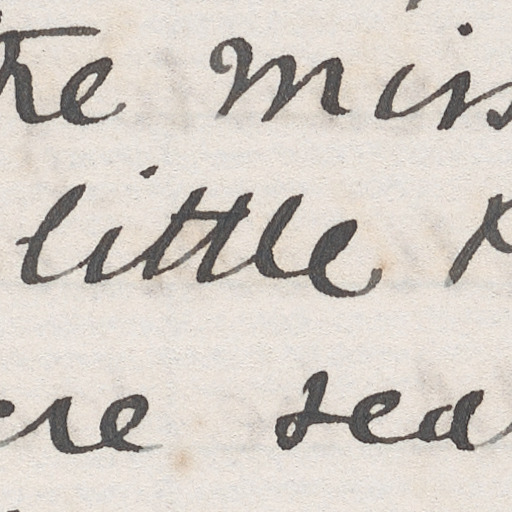 the mis
little
ere sea